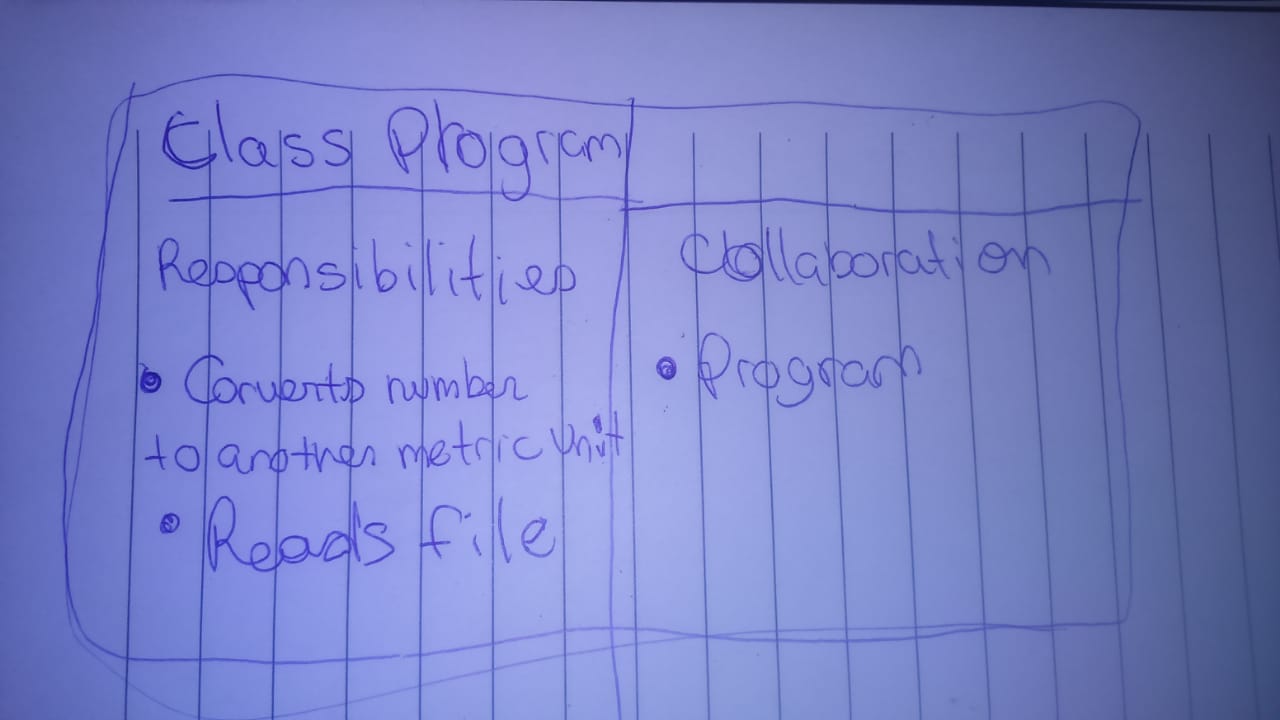 Class Program
Responsibilities
• Converts number
to another metric unit
• Reads file
Collaboration
• Program